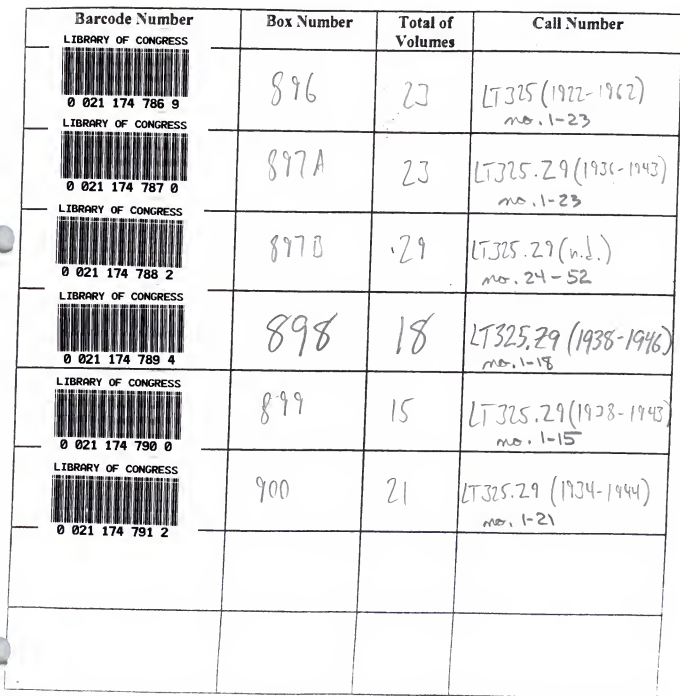 Barcode Number Box Number Total of Volumes Call Number
LIBRARY OF CONGRESS
0 021 174 786 9
896 23 LT325 (1922-1962)
no. 1-23
LIBRARY OF CONGRESS
0 021 174 787 0
897A 23 LT325.Z9 (1936-1943)
no. 1-23
LIBRARY OF CONGRESS
0 021 174 788 2
897B 29 LT325.Z9 (n.d.)
no. 24-52
LIBRARY OF CONGRESS
0 021 174 789 4
898 18 LT325.Z9 (1938-1946)
no. 1-18
LIBRARY OF CONGRESS
0 021 174 790 0
899 15 LT325.Z9 (1938-1943
no. 1-15
LIBRARY OF CONGRESS
0 021 174 791 2
900 21 LT325.Z9 (1934-1944)
no. 1-21